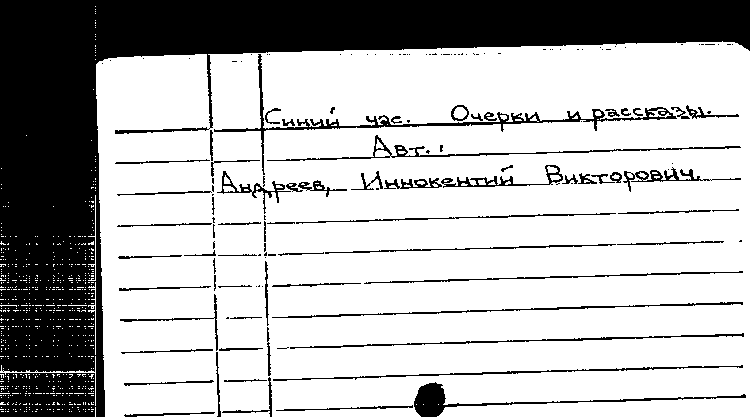 Синий час. Очерки и рассказы.
Авт.:
Андреев, Иннокентий Викторович.